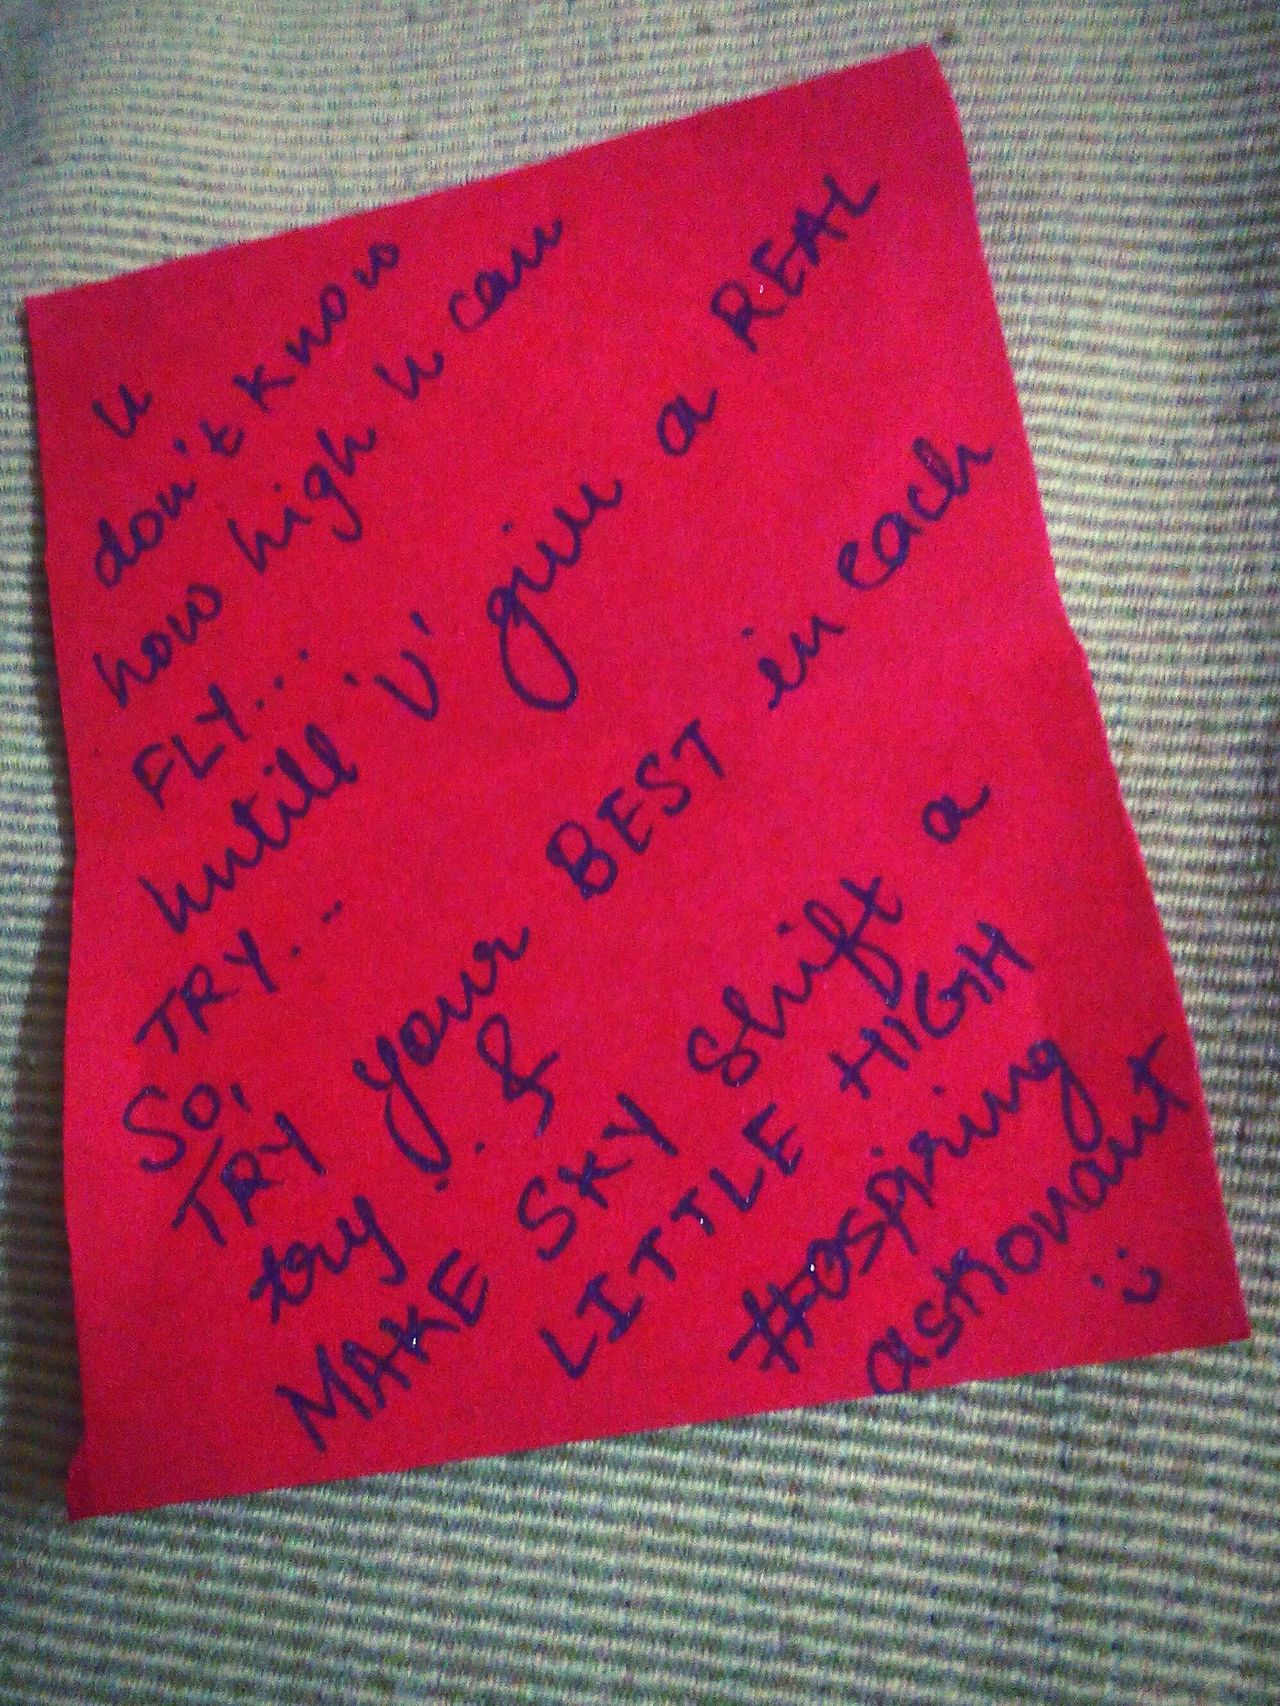 u
don't know
how high u can
FLY...
untill 'U' give a REAL
TRY...
So,
TRY your BEST in each
try. &
MAKE SKY Shift a
LITTLE HIGH
#aspiring
astronaut
:)